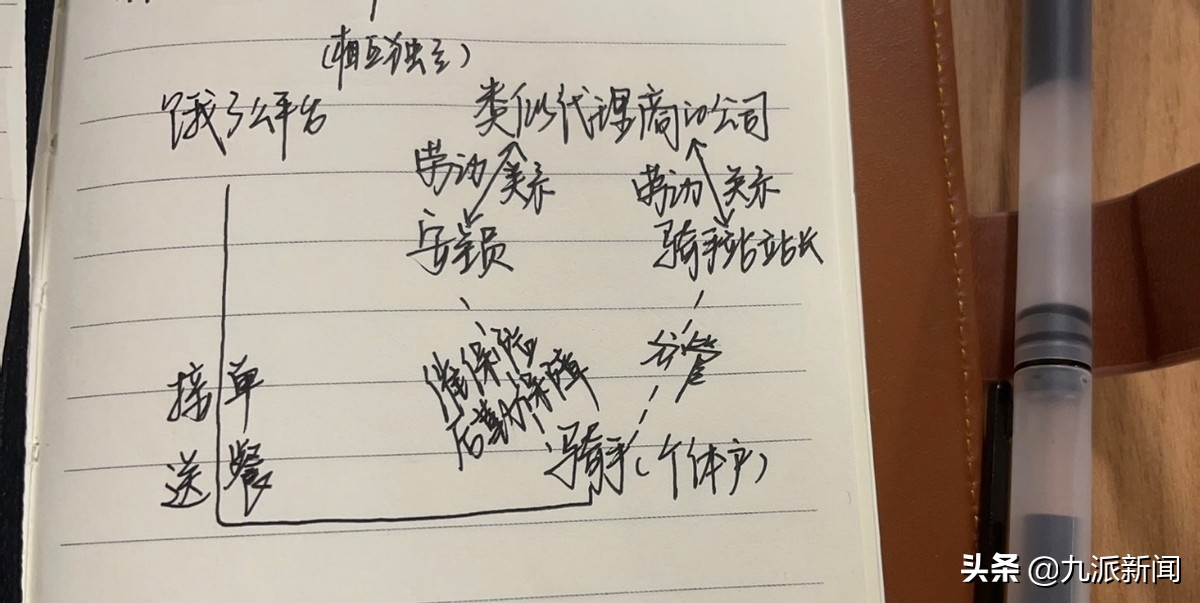 (相互独立)
饿了么平台
类似代理商的公司
劳动关系
劳动关系
安全员
骑手站站长
保险
后勤保障
分管
接单
送餐
骑手(个体户)
头条 @九派新闻